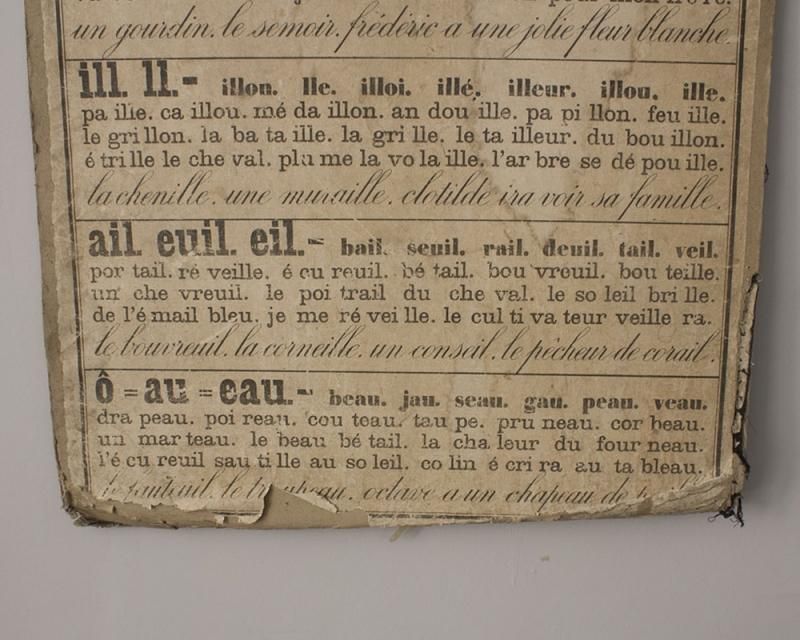 pour mon frère.
un gourdin. le semoir. frédéric a une jolie fleur blanche.
ill. ll.- illon. lle. illoi. illé. illeur. illou. ille.
pa ille. ca illou. mé da illon. an dou ille. pa pi llon. feu ille.
le gri llon. la ba ta ille. la gri lle. le ta illeur. du bou illon.
é tri lle le che val. plu me la vo la ille. l'ar bre se dé pou ille.
la chenille. une muraille. clotilde ira voir sa famille.
ail. euil. eil.- bail. seuil. rail. deuil. tail. veil.
por tail. ré veille. é cu reuil. bé tail. bou vreuil. bou teille.
un che vreuil. le poi trail du che val. le so leil bri lle.
de l'é mail bleu. je me ré vei lle. le cul ti va teur veille ra.
le bouvreuil. la corneille. un conseil. le pêcheur de corail.
ô = au = eau.- beau. jau. seau. gau. peau. veau.
dra peau. poi reau. cou teau. tau pe. pru neau. cor beau.
un mar teau. le beau bé tail. la cha leur du four neau.
l'é cu reuil sau ti lle au so leil. co lin é cri ra au ta bleau.
le fauteuil. le octave a un chapeau de